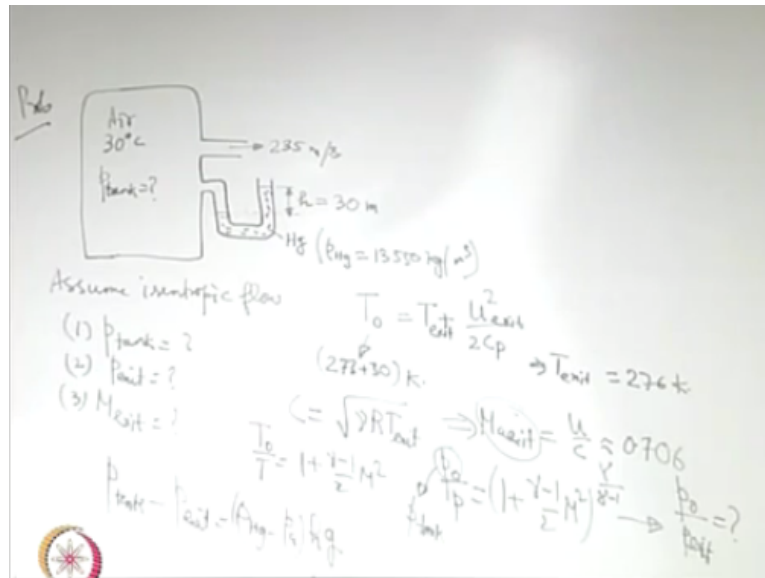 Air
30°C
Ptank=?
235 m/s
h = 30 m
Hg (ρHg = 13550 kg/m³)
Assume isentropic flow
(1) Ptank = ?
(2) Pexit = ?
(3) Mexit = ?
T₀ = Texit + u²exit / 2Cp ⇒ Texit = 276 K
(273+30) K.
C = √γRTexit ⇒ Mexit = u/c ≈ 0.706
T₀/T = 1 + γ-1/2 M²
p₀/p = (1 + γ-1/2 M²)^γ/γ-1 → p₀/pexit = ?
Ptank
Ptank - Pexit = (ρHg - ) h g